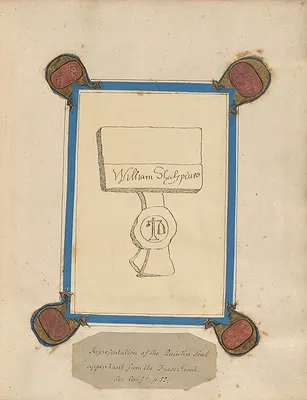 William Shakspeare
Representation of the Quintin Seal
appendant from the Fraser Deed.
See Conf.ˢ p